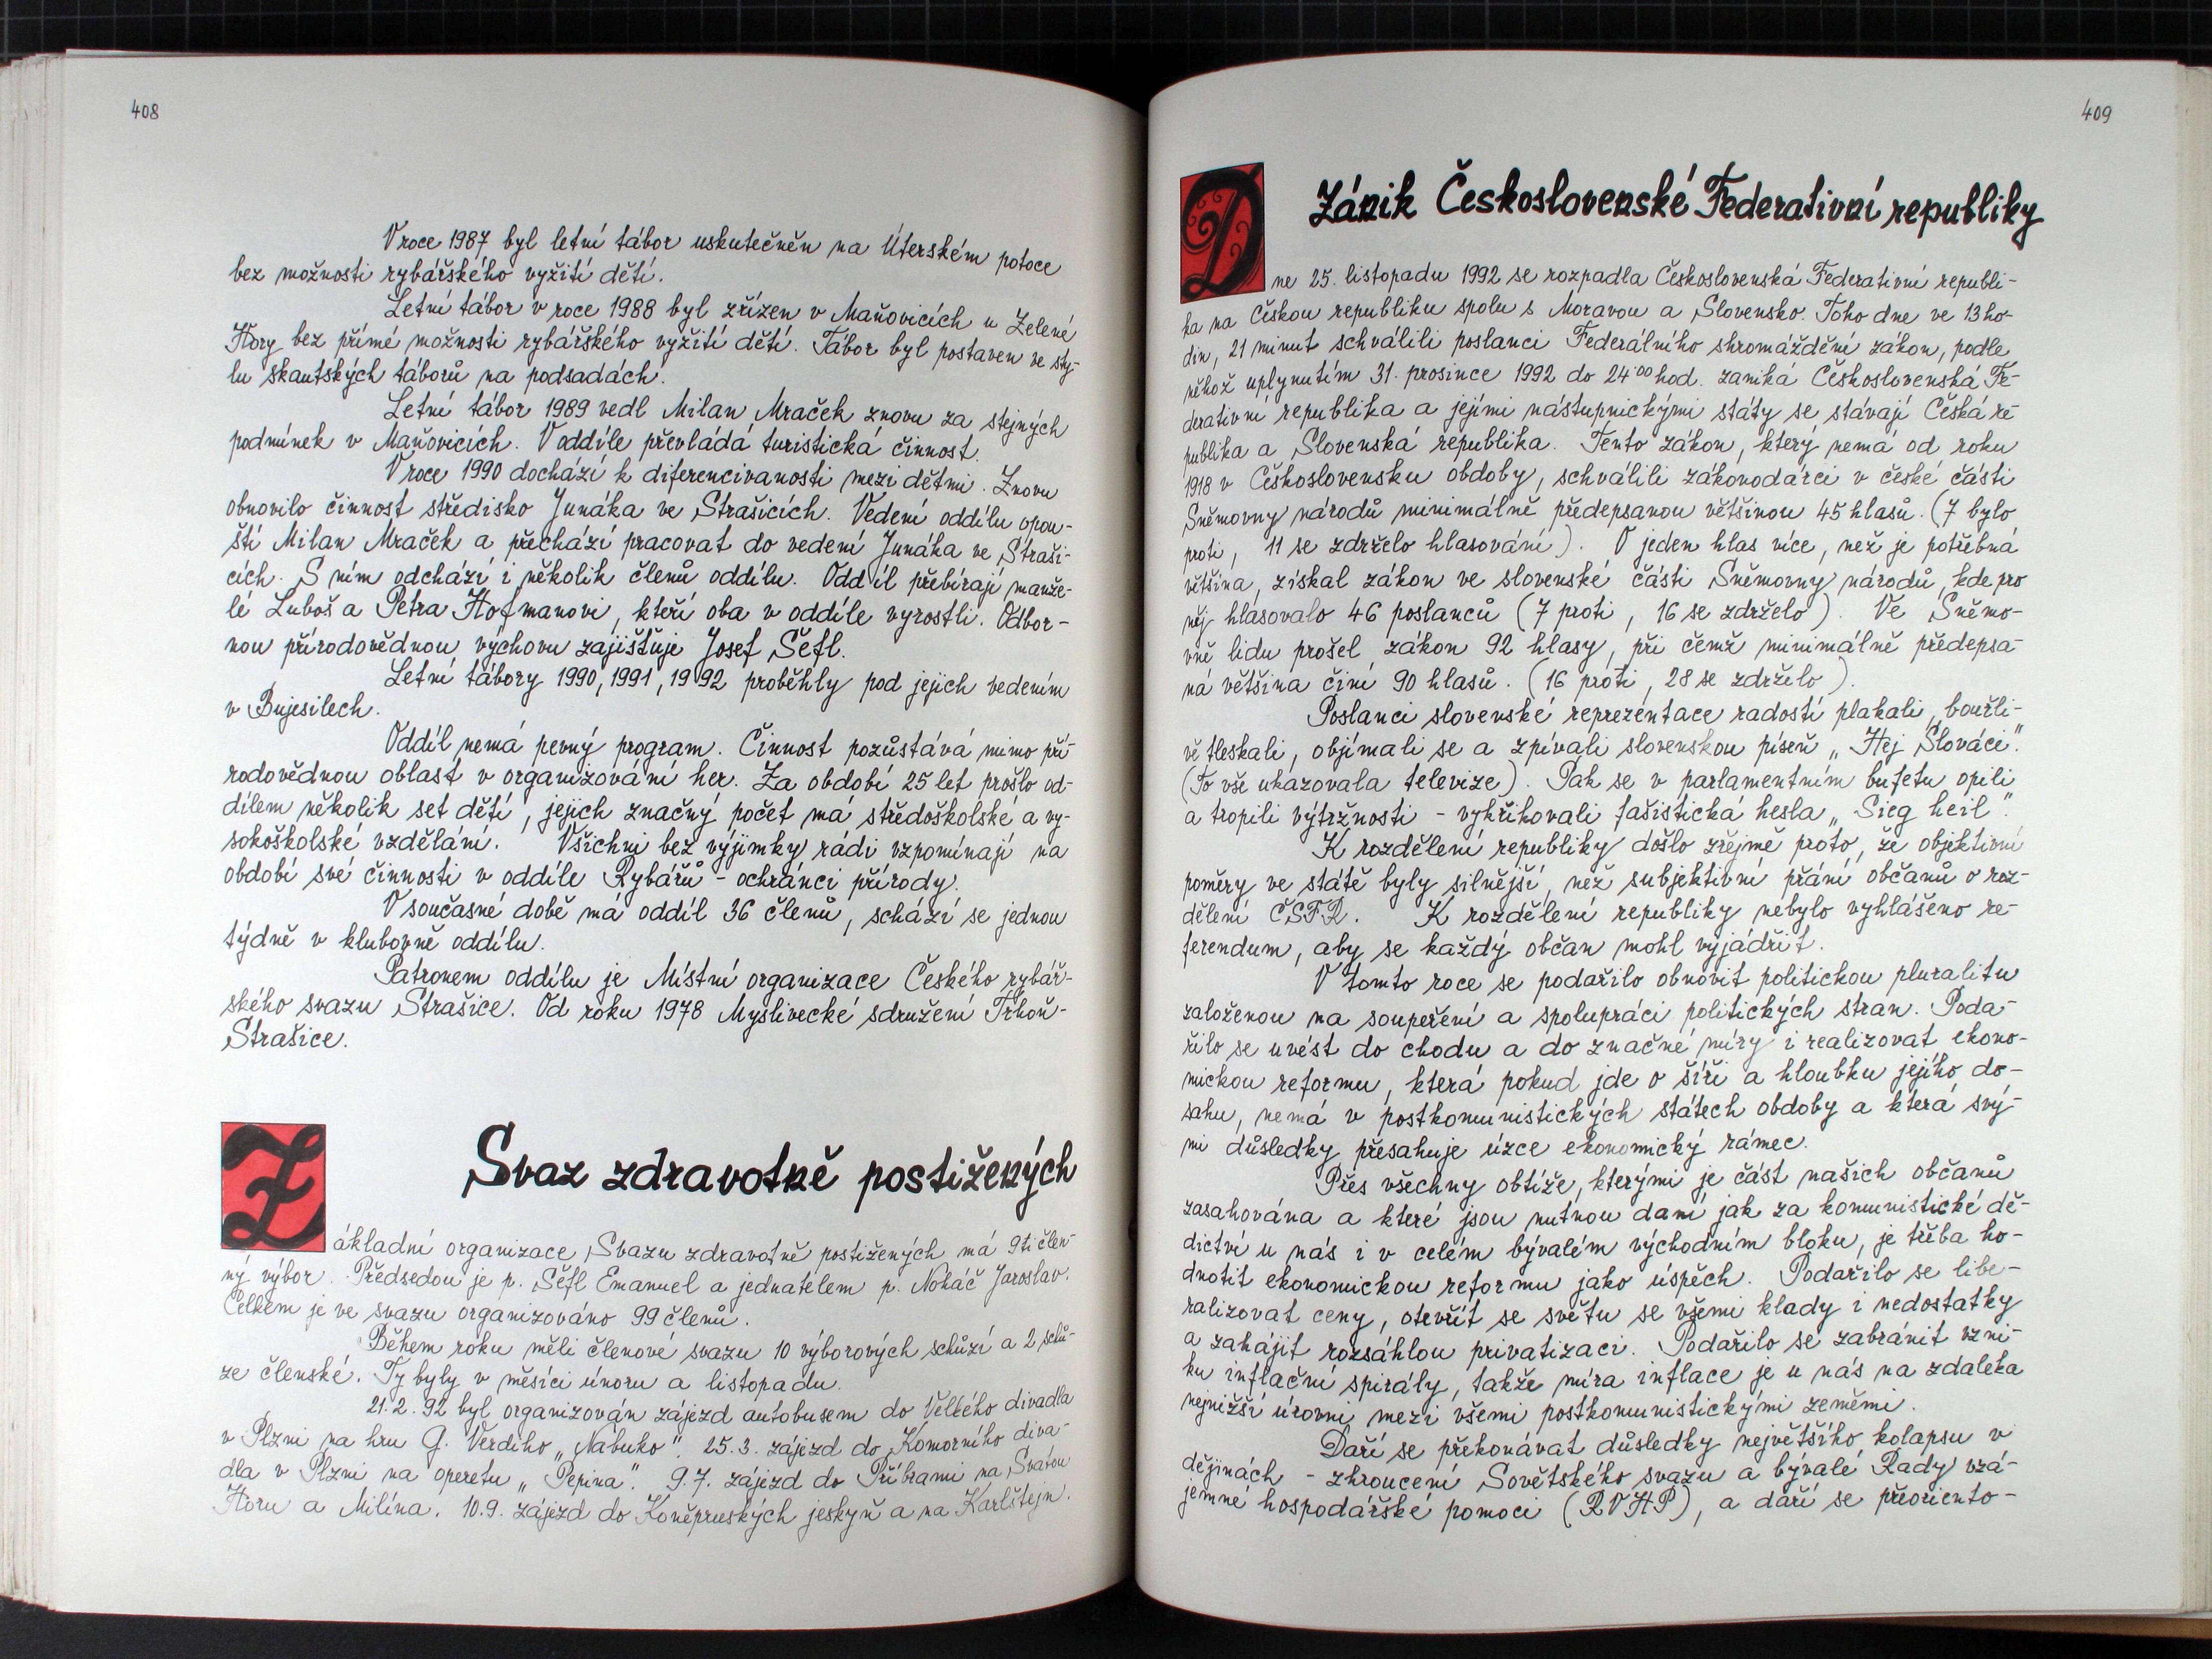 408
V roce 1987 byl letní tábor uskutečněn na Úterském potoce
bez možnosti rybářského vyžití dětí.
Letní tábor v roce 1988 byl zřízen v Maňovicích u Zelené
Hory bez přímé možnosti rybářského vyžití dětí. Tábor byl postaven ve sty-
lu skautských táborů na podsadách.
Letní tábor 1989 vedl Milan Mraček znovu za stejných
podmínek v Maňovicích. V oddíle převládá turistická činnost.
V roce 1990 dochází k diferencivanosti mezi dětmi. Znovu
obnovilo činnost středisko Junáka ve Strašicích. Vedení oddílu opou-
ští Milan Mraček a přechází pracovat do vedení Junáka ve Straši-
cích. S ním odchází i několik členů oddílu. Oddíl přebírají manže-
lé Luboš a Petra Hofmanovi, kteří oba v oddíle vyrostli. Odbor-
nou přírodovědnou výchovu zajišťuje Josef Šefl.
Letní tábory 1990, 1991, 1992 proběhly pod jejich vedením
v Bujesilech.
Oddíl nemá pevný program. Činnost pozůstává mimo pří-
rodovědnou oblast v organizování her. Za období 25 let prošlo od-
dílem několik set dětí, jejich značný počet má středoškolské a vy-
sokoškolské vzdělání. Všichni bez výjimky rádi vzpomínají na
období své činnosti v oddíle Rybářů - ochránci přírody.
V současné době má oddíl 36 členů, schází se jednou
týdně v klubovně oddílu.
Patronem oddílu je Místní organizace Českého rybář-
ského svazu Strašice. Od roku 1978 Myslivecké sdružení Trhoň-
Strašice.
Svaz zdravotně postižených
Základní organizace Svazu zdravotně postižených má 9ti člen-
ný výbor. Předsedou je p. Šefl Emanuel a jednatelem p. Nokáč Jaroslav.
Celkem je ve svazu organizováno 99 členů.
Během roku měli členové svazu 10 výborových schůzí a 2 schů-
ze členské. Ty byly v měsíci únoru a listopadu.
21.2.92 byl organizován zájezd autobusem do Velkého divadla
v Plzni na hru G. Verdiho „Nabuko". 25.3. zájezd do Komorního diva-
dla v Plzni na operetu „Pepina". 9.7. zájezd do Příbrami na Svatou
Horu a Milína. 10.9. zájezd do Koněpruských jeskyň a na Karlštejn.
409
Zánik Československé Federativní republiky
Dne 25. listopadu 1992 se rozpadla Československá Federativní republi-
ka na Českou republiku spolu s Moravou a Slovensko. Toho dne ve 13 ho-
din, 21 minut schválili poslanci Federálního shromáždění zákon, podle
něhož uplynutím 31. prosince 1992 do 24.00 hod. zaniká Československá Fe-
derativní republika a jejími nástupnickými státy se stávají Česká re-
publika a Slovenská republika. Tento zákon, který nemá od roku
1918 v Československu obdoby, schválili zákonodárci v české části
Sněmovny národů minimálně předepsanou většinou 45 hlasů. (7 bylo
proti, 11 se zdrželo hlasování). O jeden hlas více, než je potřebná
většina, získal zákon ve slovenské části Sněmovny národů, kde pro
něj hlasovalo 46 poslanců (7 proti, 16 se zdrželo). Ve Sněmo-
vně lidu prošel zákon 92 hlasy, při čemž minimálně předepsa-
ná většina činí 90 hlasů. (16 proti, 28 se zdrželo).
Poslanci slovenské reprezentace radostí plakali, bouřli-
vě tleskali, objímali se a zpívali slovenskou píseň „Hej Slováci".
(To vše ukazovala televize). Pak se v parlamentním bufetu opili
a tropili výtržnosti - vykřikovali fašistická hesla „Sieg heil".
K rozdělení republiky došlo zřejmě proto, že objektivní
poměry ve státě byly silnější, než subjektivní přání občanů o roz-
dělení ČSFR. K rozdělení republiky nebylo vyhlášeno re-
ferendum, aby se každý občan mohl vyjádřit.
V tomto roce se podařilo obnovit politickou pluralitu
založenou na soupeření a spolupráci politických stran. Poda-
řilo se uvést do chodu a do značné míry i realizovat ekono-
mickou reformu, která pokud jde o šíři a hloubku jejího do-
sahu, nemá v postkomunistických státech obdoby a která svý-
mi důsledky přesahuje úzce ekonomický rámec.
Přes všechny obtíže, kterými je část našich občanů
zasahována a které jsou nutnou daní jak za komunistické dě-
dictví u nás i v celém bývalém východním bloku, je třeba ho-
dnotit ekonomickou reformu jako úspěch. Podařilo se libe-
ralizovat ceny, otevřít se světu se všemi klady i nedostatky
a zahájit rozsáhlou privatizaci. Podařilo se zabránit vzni-
ku inflační spirály, takže míra inflace je u nás na zdaleka
nejnižší úrovni mezi všemi postkomunistickými zeměmi.
Daří se překonávat důsledky největšího kolapsu v
dějinách - zhroucení Sovětského svazu a bývalé Rady vzá-
jemné hospodářské pomoci (RVHP), a daří se přeoriento-